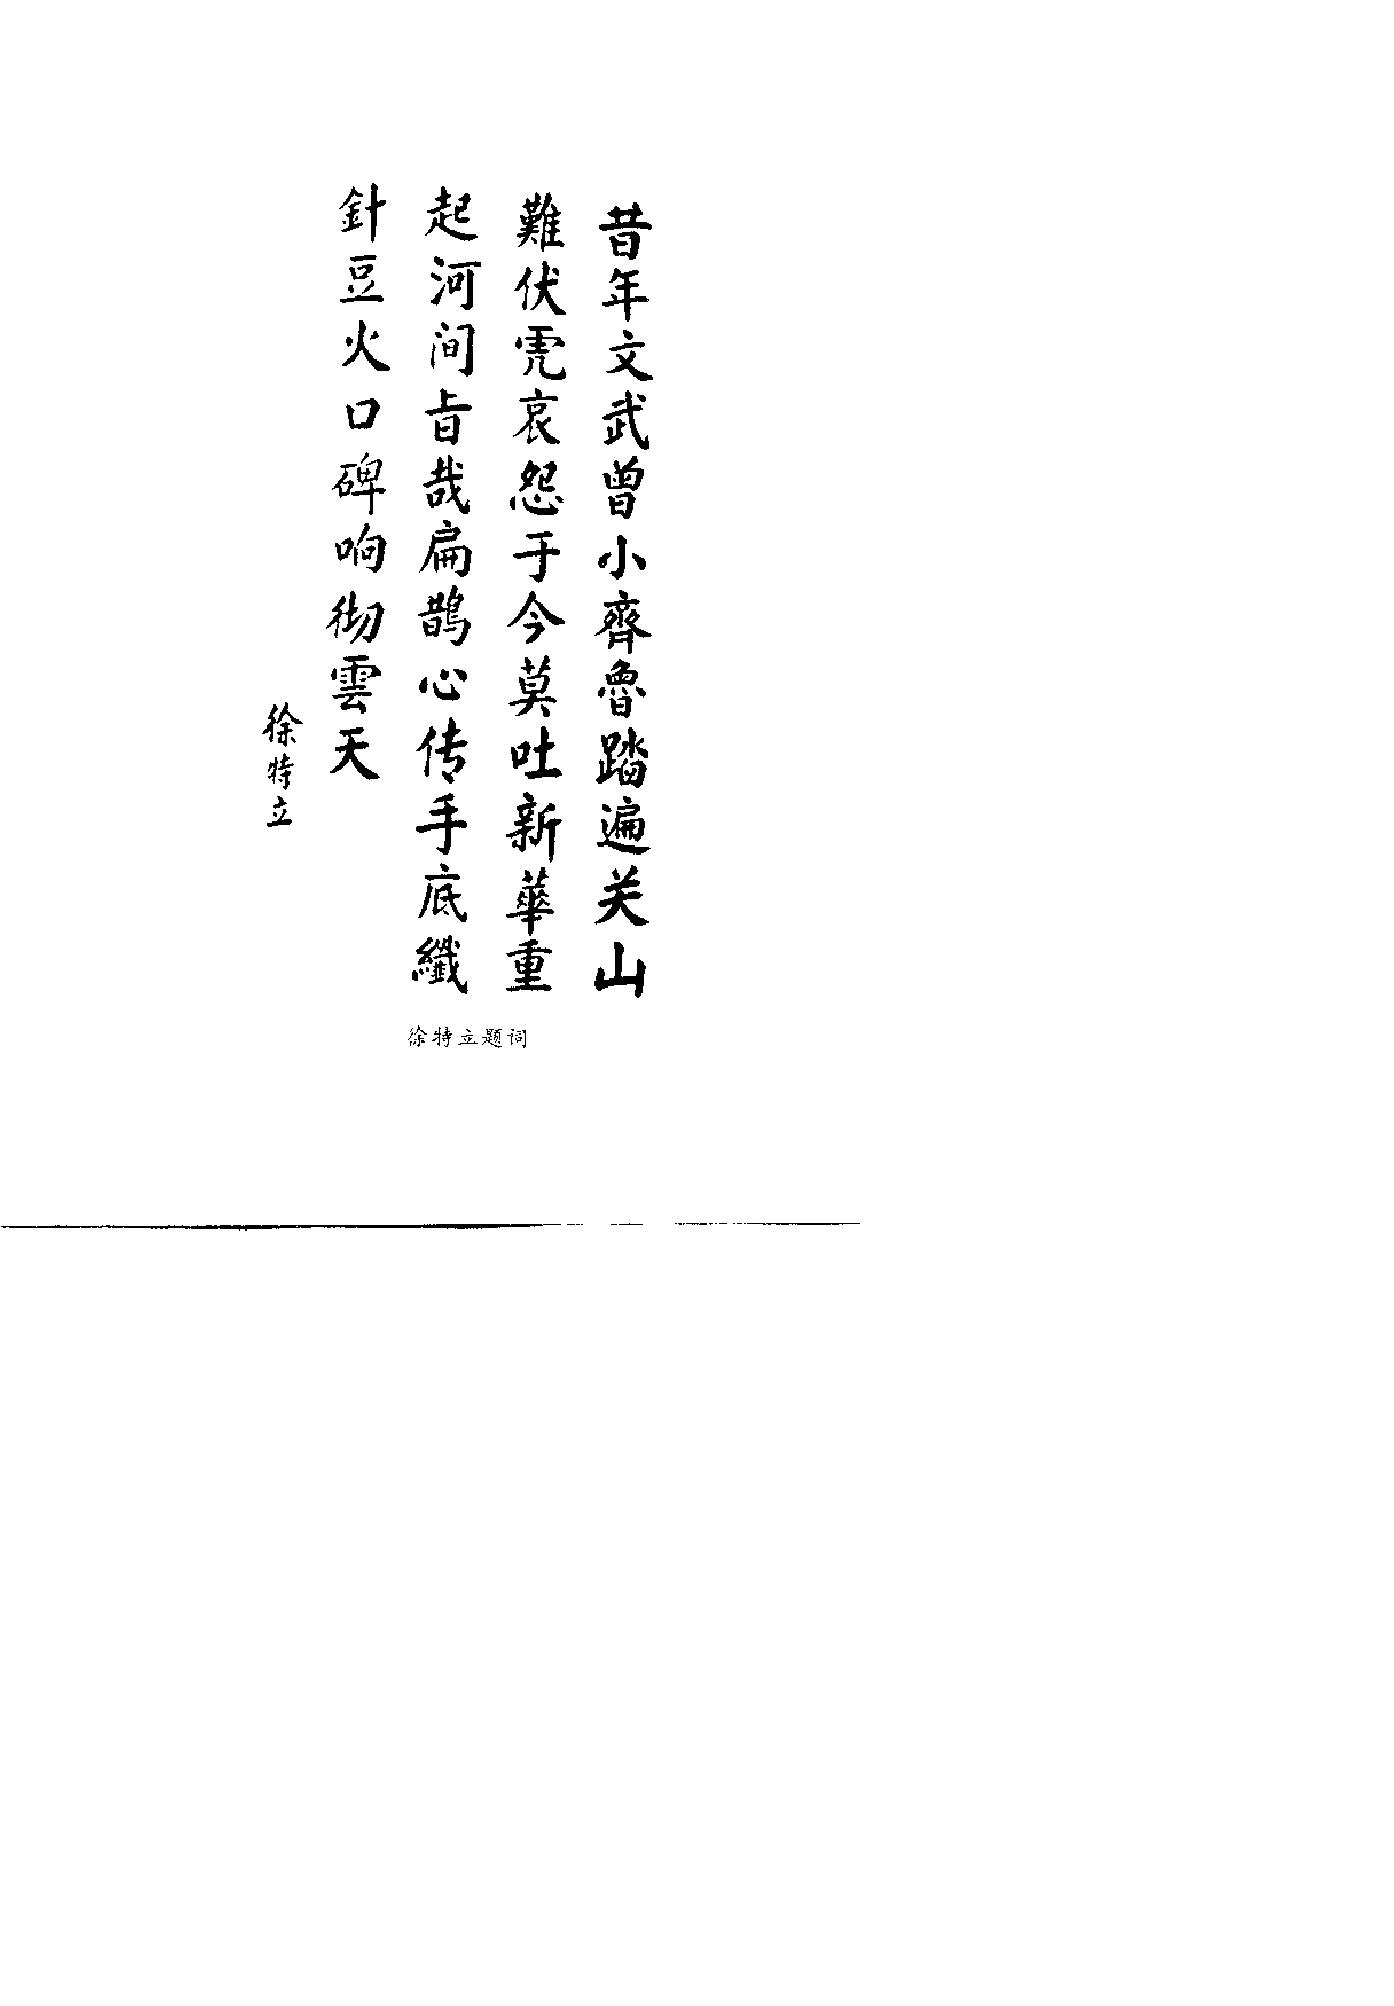 昔年文武曾小齊魯踏遍关山
難伏虎哀怨于今莫吐新華重
起河间旨哉扁鹊心传手底纖
針豆火口碑响彻雲天
徐特立
徐特立题词